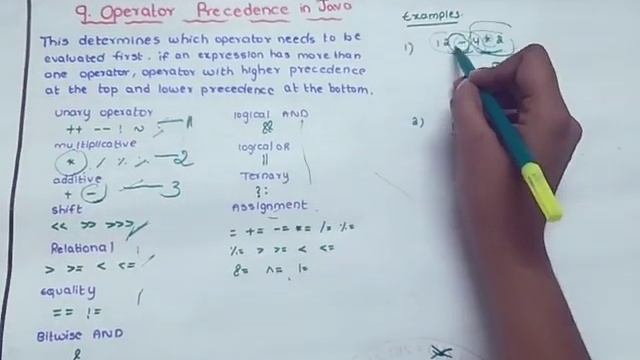 9. Operator Precedence in Java
This determines which operator needs to be
evaluated first. if an expression has more than
one operator, operator with higher precedence
at the top and lower precedence at the bottom.
unary operator
++ -- ! ~ 1
multiplicative
* / % 2
additive
+ - 3
shift
<< >> >>>
Relational
> >= < <=
Equality
== !=
Bitwise AND
&
logical AND
&&
logical OR
||
Ternary
? :
Assignment
= += -= *= /= %=
%= > >= < <=
&= ^= |=
Examples
1) 12 - 4 * 2
2)